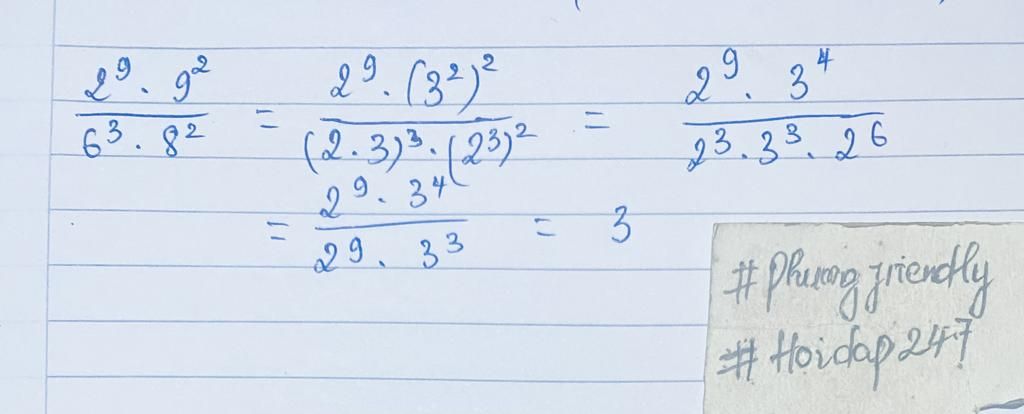 2⁹ · 9² / 6³ · 8² = 2⁹ · (3²)² / (2 · 3)³ · (2³)² = 2⁹ · 3⁴ / 2³ · 3³ · 2⁶
= 2⁹ · 3⁴ / 2⁹ · 3³ = 3
# Phuong friendly
# Hoidap247